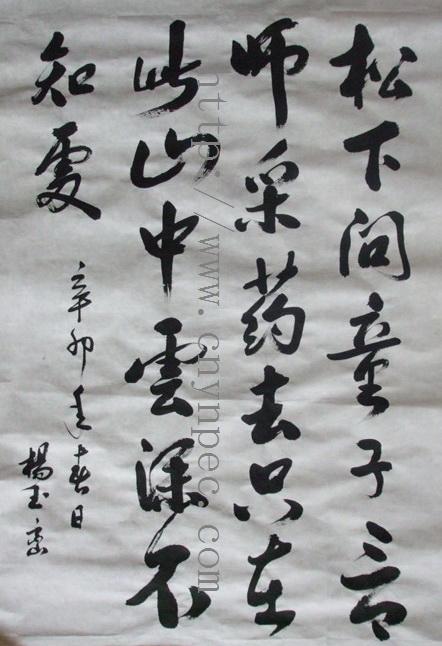 松下问童子言
师采药去只在
此山中雲深不
知處
辛卯年春日
楊玉
http://www.cnynpec.com